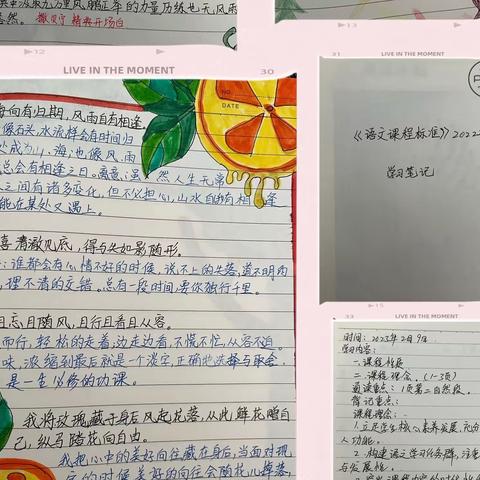 力量历练也无风雨
撒贝宁 精典开场白
12
LIVE IN THE MOMENT
30
NO
DATE
海向有归期,风雨自有相逢
像石头,水流样会有时间归
处成为山、海;也像风、雨
总会有相逢之日。寓意:虽然人生无常
人之间有诸多变化,但不必担心,山水自有相逢
能在某处又遇上。
喜清澈见底,得与失如影随形。
:谁都会有心情不好的时候,说不上的失落,道不明的
,理不清的交错。总有一段时间,要你独行千里。
且忘且随风,且行且看且从容。
而行,轻松的走着边走边看,不慌不忙,从容不迫
味,浓缩到最后就是一个淡定,正确地选择与取舍
是一生必修的功课。
我将玫瑰藏于身后风起花落,从此鲜花赠自
己,纵马踏花向自由。
我把心中的美好向往藏在身后,当面对现
的时候美好的向往会随花儿掉落,
13
LIVE IN THE MOMENT
31
《语文课程标准》2022
学习笔记
15
LIVE IN THE MOMENT
33
时间:2023年2月9日
学习内容:
一.课程性质
二.课程理念.(1-3页)
通读重点:1页第二自然段。
背记重点:
课程理念:
1.立足学生核心素养发展,充分
人功能。
2.构建语文学习任务群,注重
与发展性。